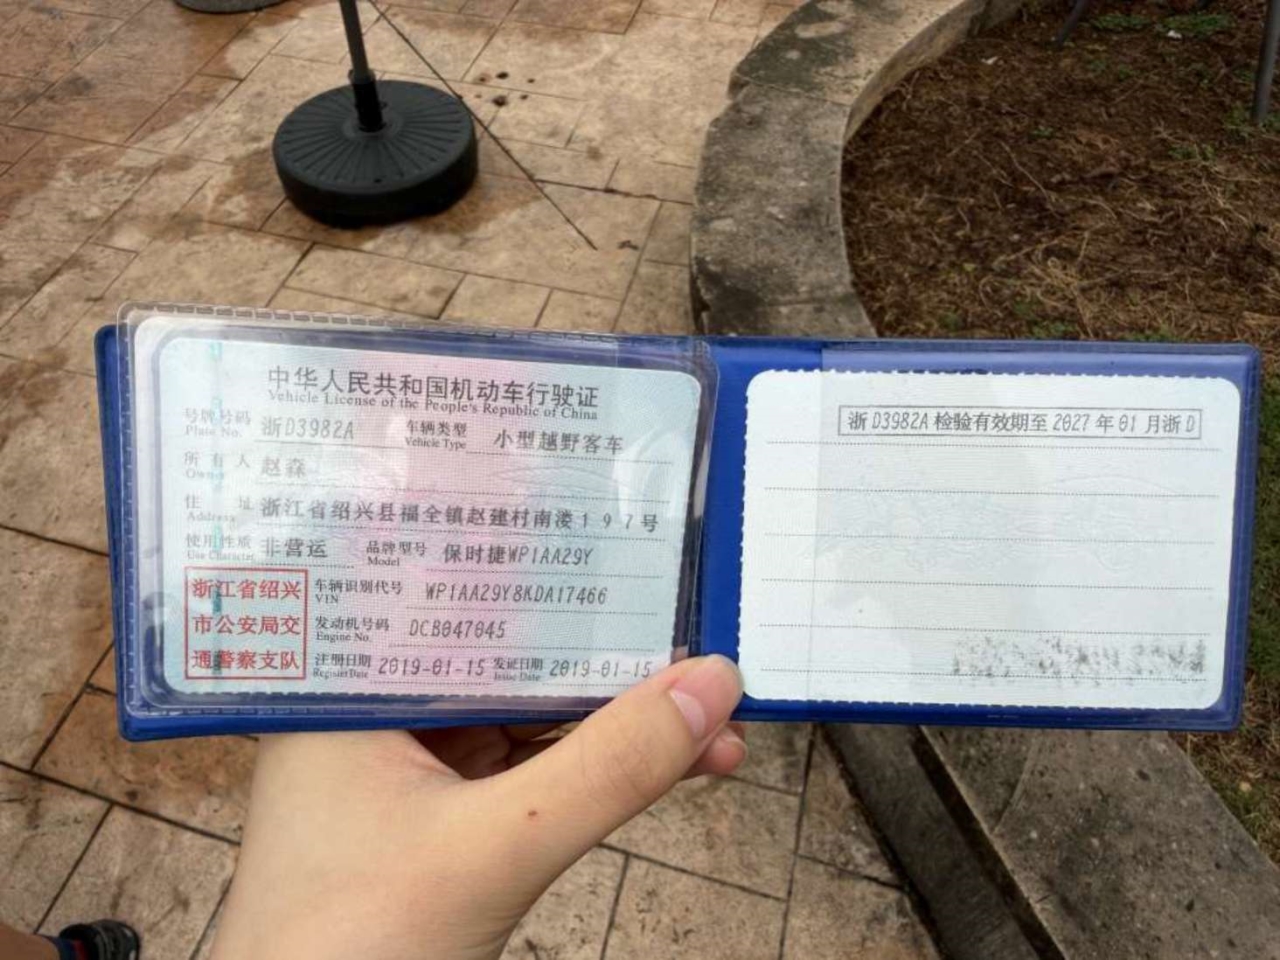 中华人民共和国机动车行驶证
Vehicle License of the People's Republic of China
号牌号码 浙D3982A 车辆类型 小型越野客车
Plate No. Vehicle Type
所有人 赵森
Owner
住址 浙江省绍兴县福全镇赵建村南溇197号
Address
使用性质 非营运 品牌型号 保时捷WP1AA29Y
Use Character Model
浙江省绍兴 车辆识别代号 WP1AA29Y8KDA17466
VIN
市公安局交 发动机号码 DCB047045
Engine No.
通警察支队 注册日期 2019-01-15 发证日期 2019-01-15
Register Date Issue Date
浙D3982A检验有效期至2027年01月浙D